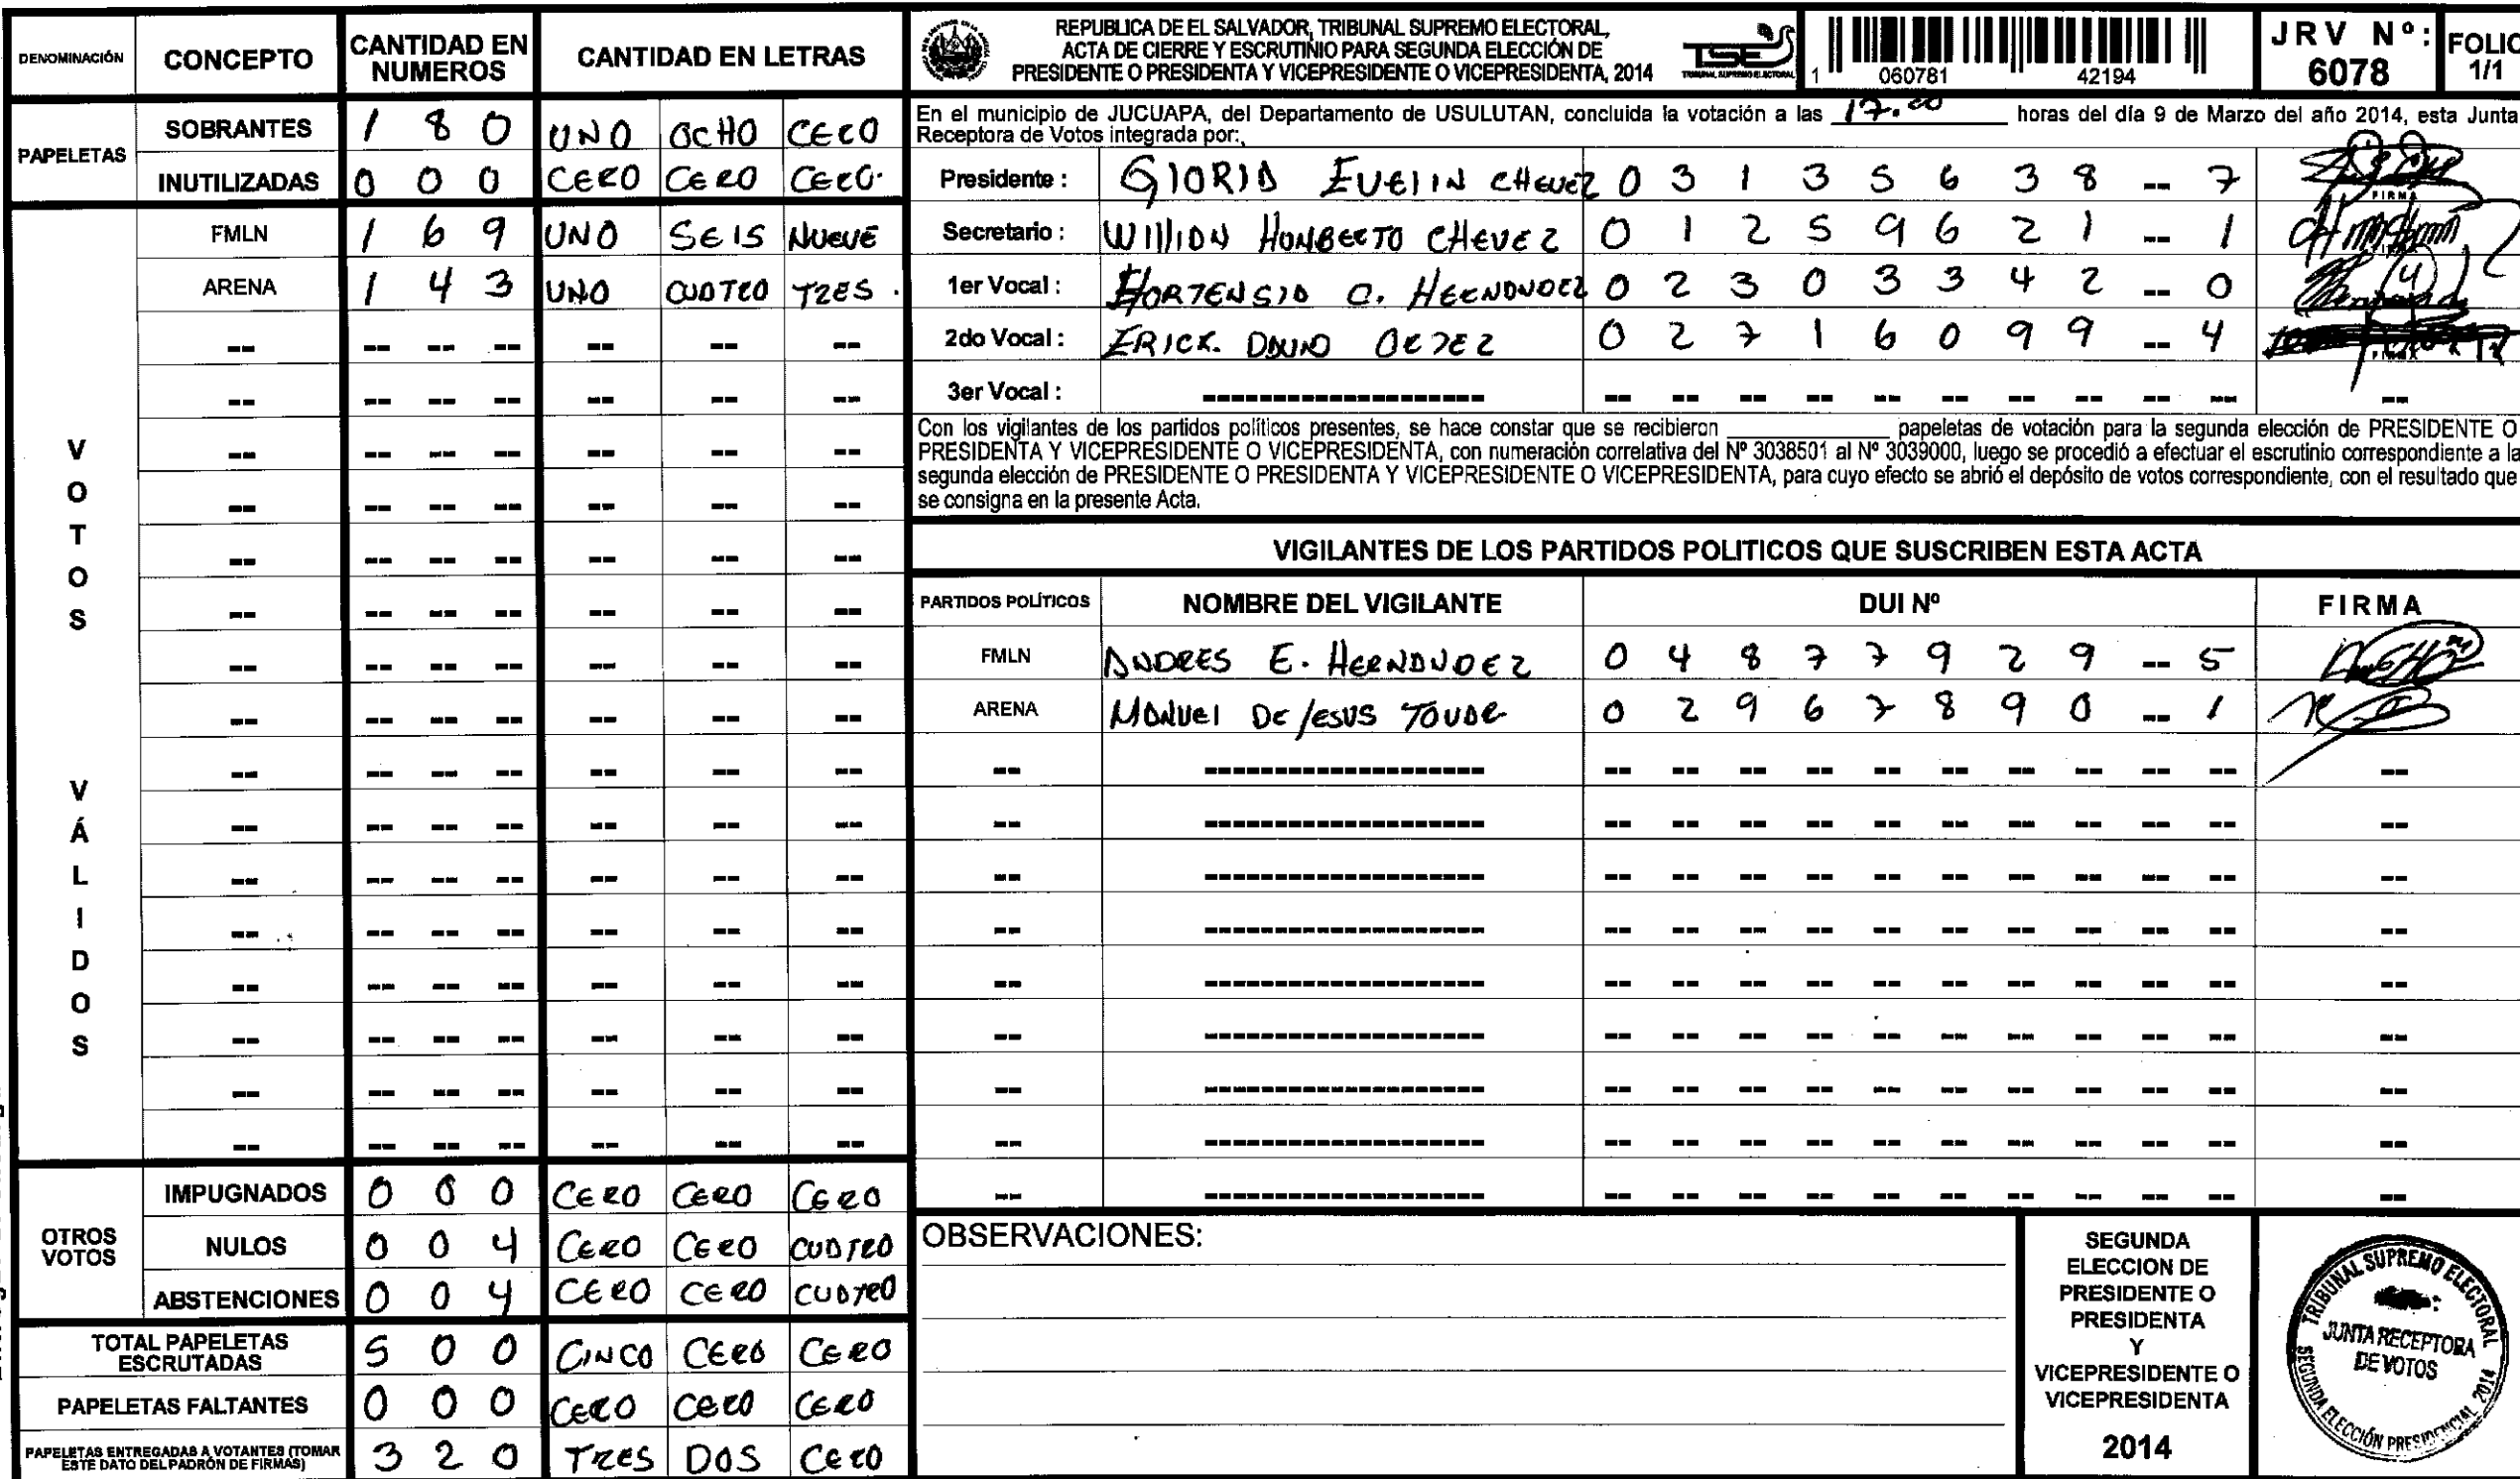 DENOMINACIÓN CONCEPTO CANTIDAD EN NUMEROS CANTIDAD EN LETRAS
PAPELETAS
SOBRANTES 1 8 0 UNO OCHO CERO
INUTILIZADAS 0 0 0 CERO CERO CERO.
VOTOS VÁLIDOS
FMLN 1 6 9 UNO SEIS NUEVE
ARENA 1 4 3 UNO CUATRO TRES.
OTROS VOTOS
IMPUGNADOS 0 0 0 CERO CERO CERO
NULOS 0 0 4 CERO CERO CUATRO
ABSTENCIONES 0 0 4 CERO CERO CUATRO
TOTAL PAPELETAS ESCRUTADAS 5 0 0 CINCO CERO CERO
PAPELETAS FALTANTES 0 0 0 CERO CERO CERO
PAPELETAS ENTREGADAS A VOTANTES (TOMAR ESTE DATO DEL PADRÓN DE FIRMAS) 3 2 0 TRES DOS CERO
REPUBLICA DE EL SALVADOR, TRIBUNAL SUPREMO ELECTORAL,
ACTA DE CIERRE Y ESCRUTINIO PARA SEGUNDA ELECCIÓN DE
PRESIDENTE O PRESIDENTA Y VICEPRESIDENTE O VICEPRESIDENTA, 2014
TSE
TRIBUNAL SUPREMO ELECTORAL
1 060781 42194
JRV Nº: 6078
FOLIO 1/1
En el municipio de JUCUAPA, del Departamento de USULUTAN, concluida la votación a las 17.00 horas del día 9 de Marzo del año 2014, esta Junta
Receptora de Votos integrada por:
Presidente : GLORIA EVELIN CHEVEZ 0 3 1 3 5 6 3 8 -- 7
FIRMA
Secretario : WILLIAN HUMBERTO CHEVEZ 0 1 2 5 9 6 2 1 -- 1
1er Vocal : HORTENSIA C. HERNANDEZ 0 2 3 0 3 3 4 2 -- 0
2do Vocal : ERICK. 0 2 7 1 6 0 9 9 -- 4
3er Vocal : -- -- -- -- -- -- -- -- -- --
Con los vigilantes de los partidos políticos presentes, se hace constar que se recibieron ________ papeletas de votación para la segunda elección de PRESIDENTE O
PRESIDENTA Y VICEPRESIDENTE O VICEPRESIDENTA, con numeración correlativa del Nº 3038501 al Nº 3039000, luego se procedió a efectuar el escrutinio correspondiente a la
segunda elección de PRESIDENTE O PRESIDENTA Y VICEPRESIDENTE O VICEPRESIDENTA, para cuyo efecto se abrió el depósito de votos correspondiente, con el resultado que
se consigna en la presente Acta.
VIGILANTES DE LOS PARTIDOS POLITICOS QUE SUSCRIBEN ESTA ACTA
PARTIDOS POLÍTICOS NOMBRE DEL VIGILANTE DUI Nº FIRMA
FMLN ANDRES E. HERNANDEZ 0 4 8 7 7 9 2 9 -- 5
ARENA MANUEL DE JESUS TOVAR 0 2 9 6 7 8 9 0 -- 1
OBSERVACIONES:
SEGUNDA
ELECCION DE
PRESIDENTE O
PRESIDENTA
Y
VICEPRESIDENTE O
VICEPRESIDENTA
2014
TRIBUNAL SUPREMO ELECTORAL
JUNTA RECEPTORA
DE VOTOS
SEGUNDA ELECCIÓN PRESIDENCIAL 2014